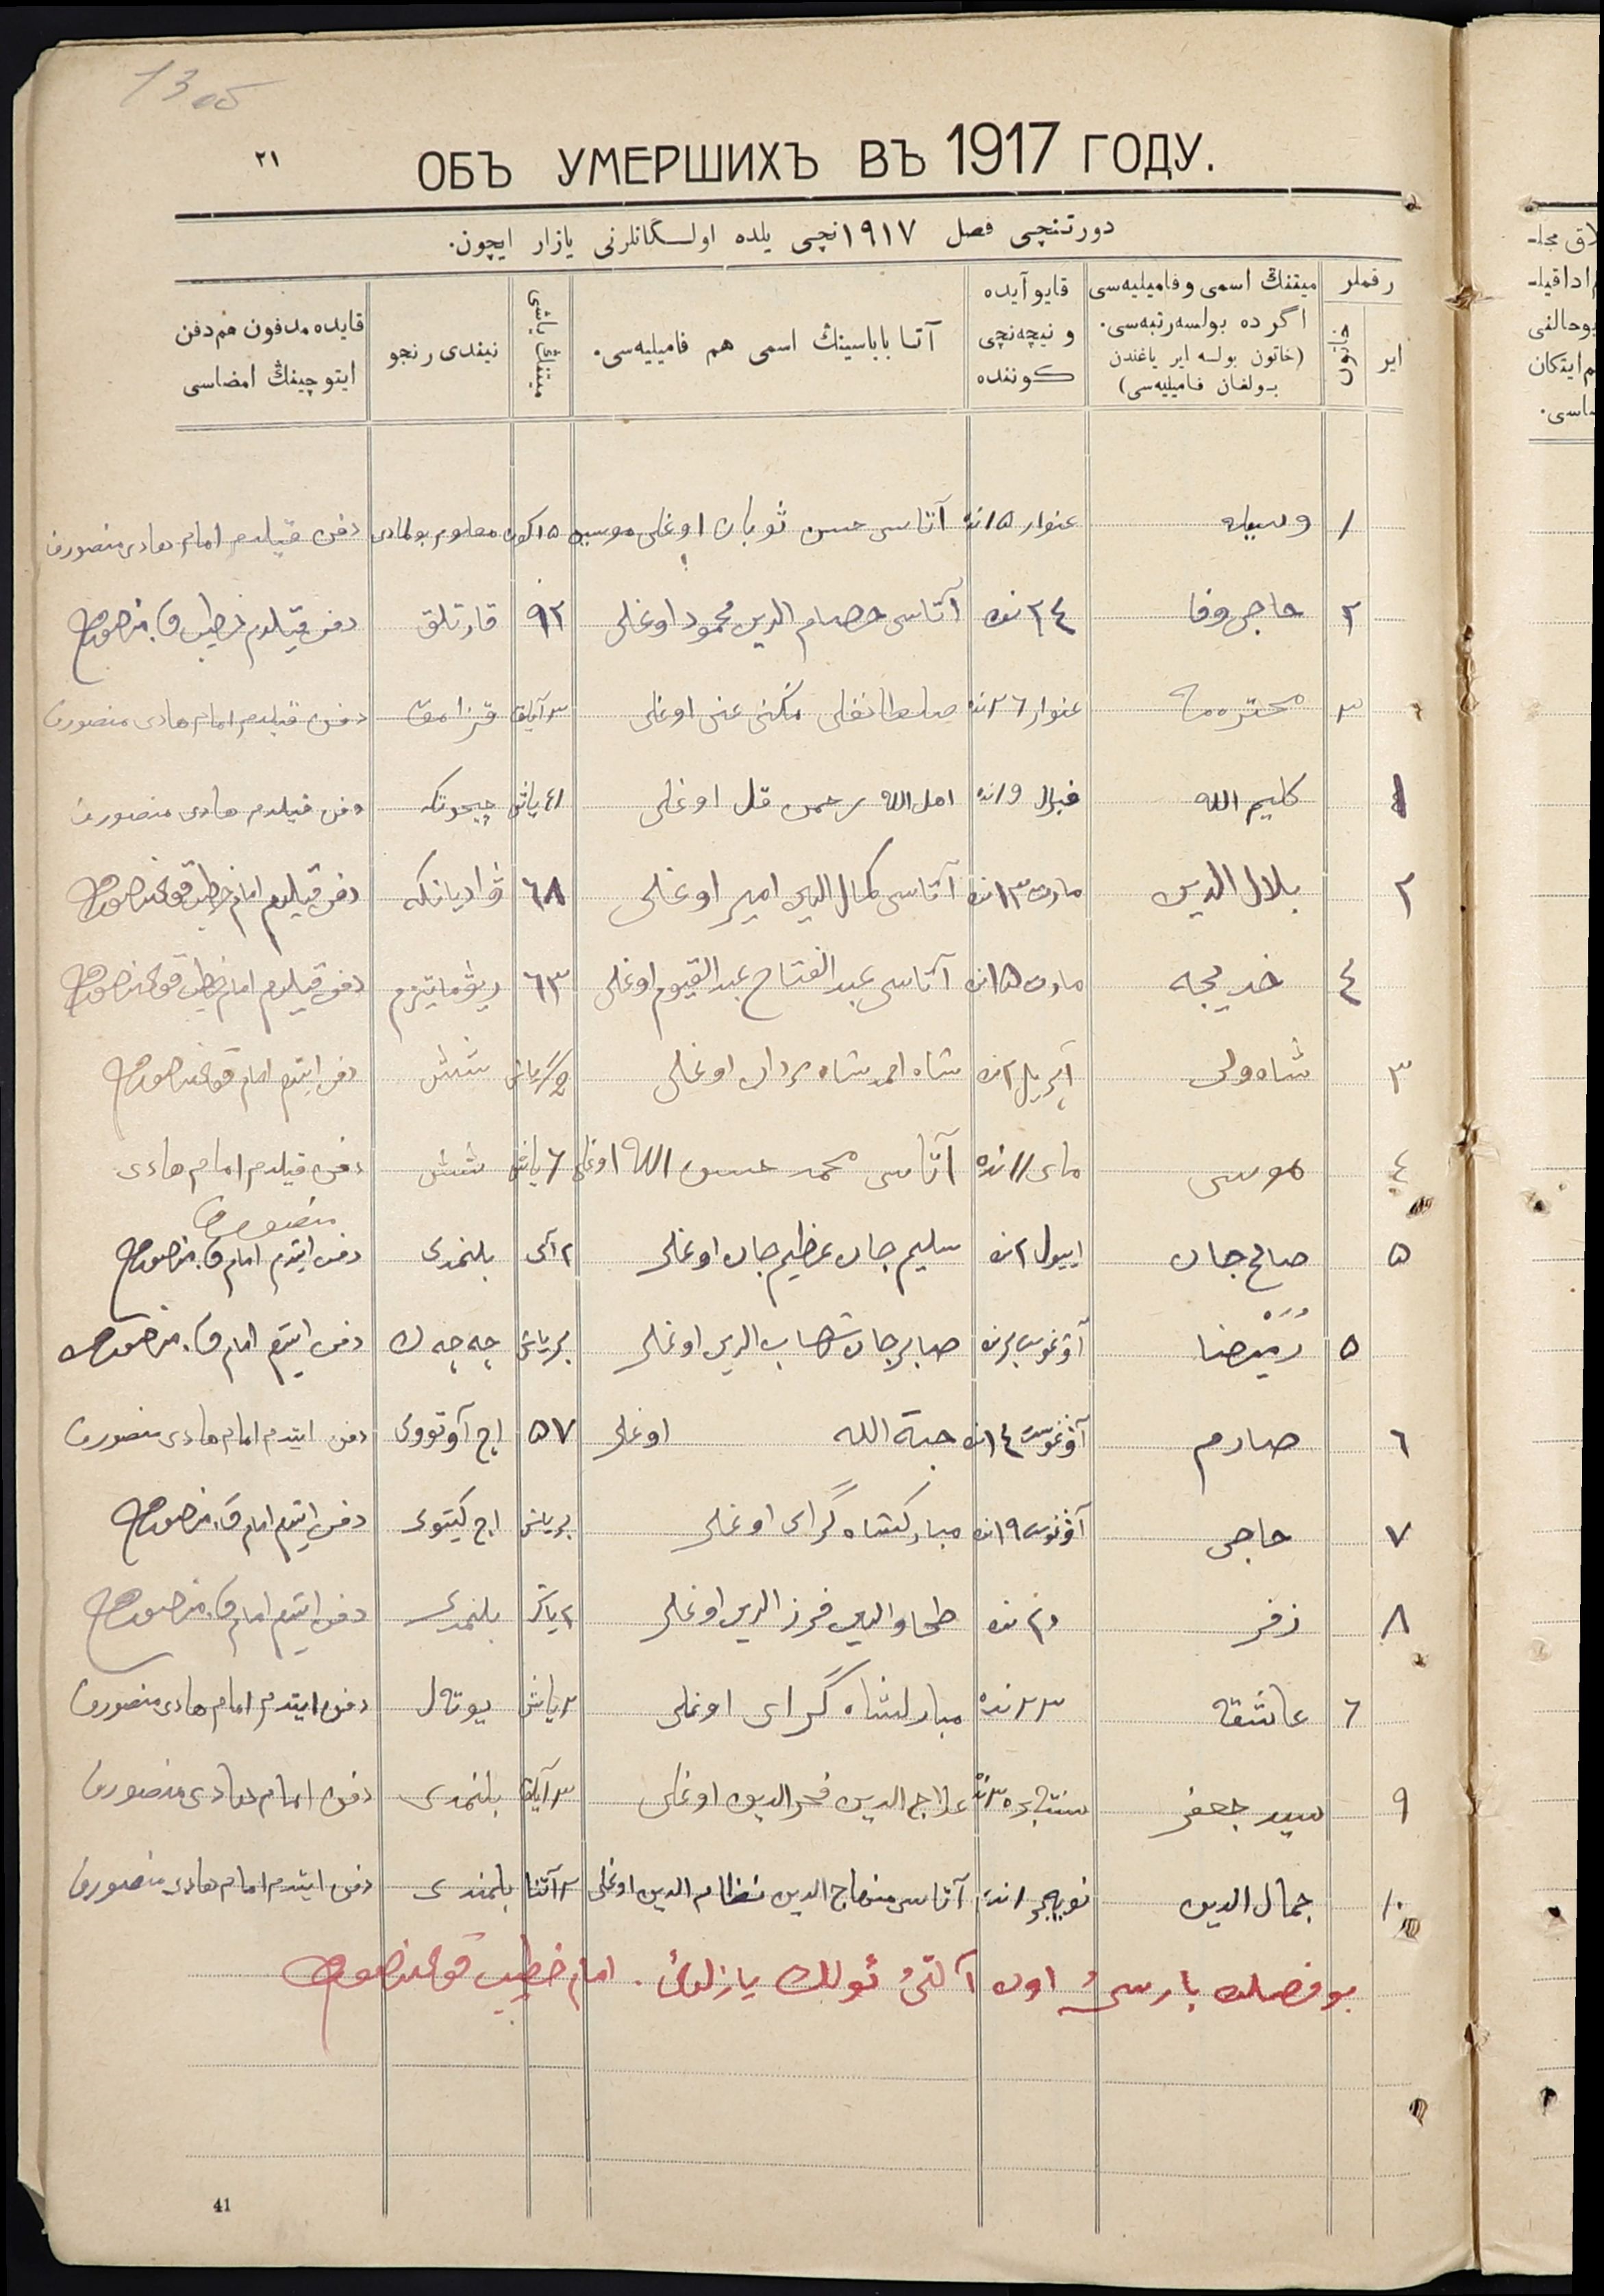 13 об
٢١
ОБЪ УМЕРШИХЪ ВЪ 1917 ГОДУ.
دورتنچی فصل ١٩١٧نچی یلده اولـگانلرنی یازار ایچون.
رقملر
ایر
خاتون
میتنڭ اسمی وفامیلیه‌سی
اگر ده بولسه رتبه‌سی.
(خاتون بولسه ایر یاغندن
بـولغان فامیلیه‌سی)
قایو آیده
و نیچه‌نچی
کـوننده
آتـا باباسینڭ اسمی هم فامیلیه‌سی.
میتنڭ یاشی
نیندی رنجو
قایده مدفون هم دفن
ایتو چینڭ امضاسی
١ وسیله غنوار ١٥نده آتاسی حسن ثوبان اوغلی ١٥کون معلوم بولمادی دفن قیلدم امام هادی منصورف
٢ حاجی وفا ٢٤نده آتاسی حصام الدین محمود اوغلی ٩٢ قارتلق دفن قیلدم خطیب
٣ محترمه غنوار ٢٦نده اوغلی ٣آیلق قزامق دفن قیلدم امام هادی منصورف
١ کلیم الله اهل الله رحمن قل اوغلی ٤١یاش چیحوتکه دفن قیلدم هادی منصورف
٢ بلال الدین مارت ١٣نده آتاسی کمال الدین امیر اوغلی ٦٨ ڤادیانکه دفن قیلدم امام خطیب
٤ خدیجه مارت ١٥نده آتاسی عبد الفتاح عبد القیوم اوغلی ٦٣ ریڤماتیزم دفن قیلدم امام خطیب
٣ شاه ولی آپریل ٢نده شاه احمد شاه مردان اوغلی شش دفن ایتدم امام
٤ موسی مای ١١نده آتاسی محمد حسن الله اوغلی ٦یاش شش دفن قیلدم امام هادی
منصورف
٥ صالح جان اییول ٢نده سلیم جان عظیم جان اوغلی ٢آی بلنمدی دفن ایتدم امام
٥ آوغوست صابرجان شهاب الدین اوغلی بریاش چه چه ک دفن ایتدم امام
٦ صارم آوغوست ١٤نده حبة الله اوغلی ٥٧ اچ آوتووی دفن ایتدم امام هادی منصورف
٧ حاجی آوغوست ١٩نده مبارکشاه گرای اوغلی بریاش اچ کیتوی دفن ایتدم امام
٨ زفر ٢٠نده اوغلی ٢یاش بلنمدی دفن ایتدم امام
٦ عاشقه ٢٣نده مبارکشاه گرای اوغلی ٢یاش یوتەل دفن ایتدم امام هادی منصورف
٩ سید جعفر سنتەبره ٣نده علاج الدین فخر الدین اوغلی ٣آیلق بلنمدی دفن امام هادی منصورف
١٠ جمال الدین نویەبر ١نده آتاسی منهاج الدین نظام الدین اوغلی ٢آتنا بلمندی دفن ایتدم امام هادی منصورف
بو فصلده بارسیٔ اون آلتیٔ ئولك یازلغان. امام خطیب
41
لاق مجلـ
م اداقیلـ
یوحالنی
م ایتکان
ـاسی.